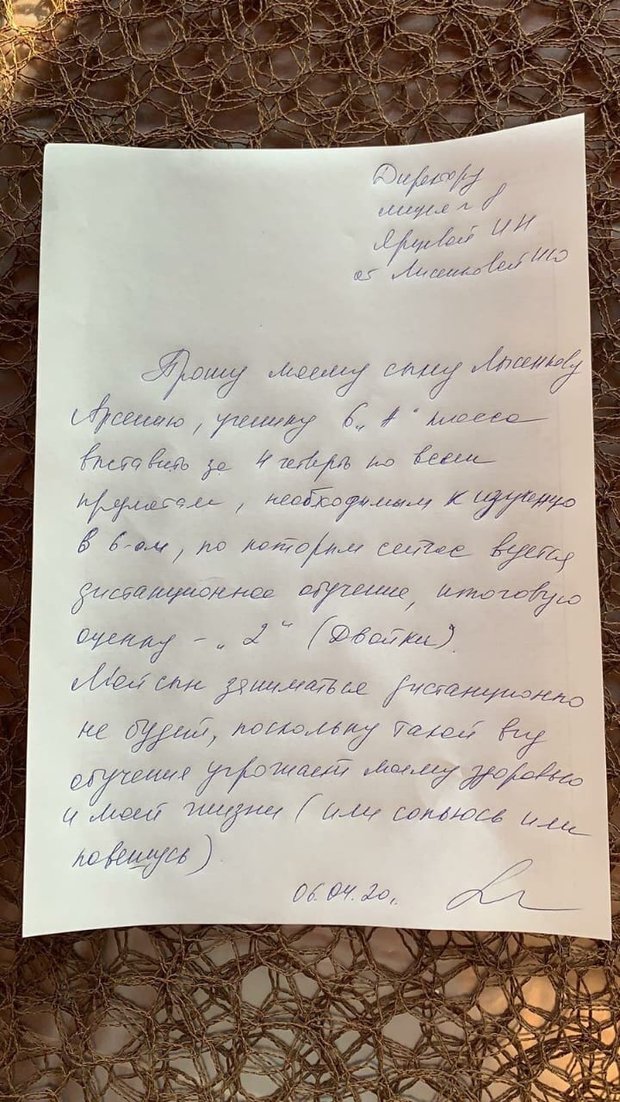 Директору
лицея № 8
Яруевой ИН
от Лысенковой ИЮ
Прошу моему сыну Лысенкову
Арсению, ученику 6 „А“ класса
выставить за 4 четверть по всем
предметам, необходимым к изучению
в 6-ом, по которым сейчас ведется
дистанционное обучение, итоговую
оценку – „2“ (Двойки).
Мой сын заниматься дистанционно
не будет, поскольку такой вид
обучения угрожает моему здоровью
и моей жизни (или сопьюсь или
повешусь)
06.04.20г.